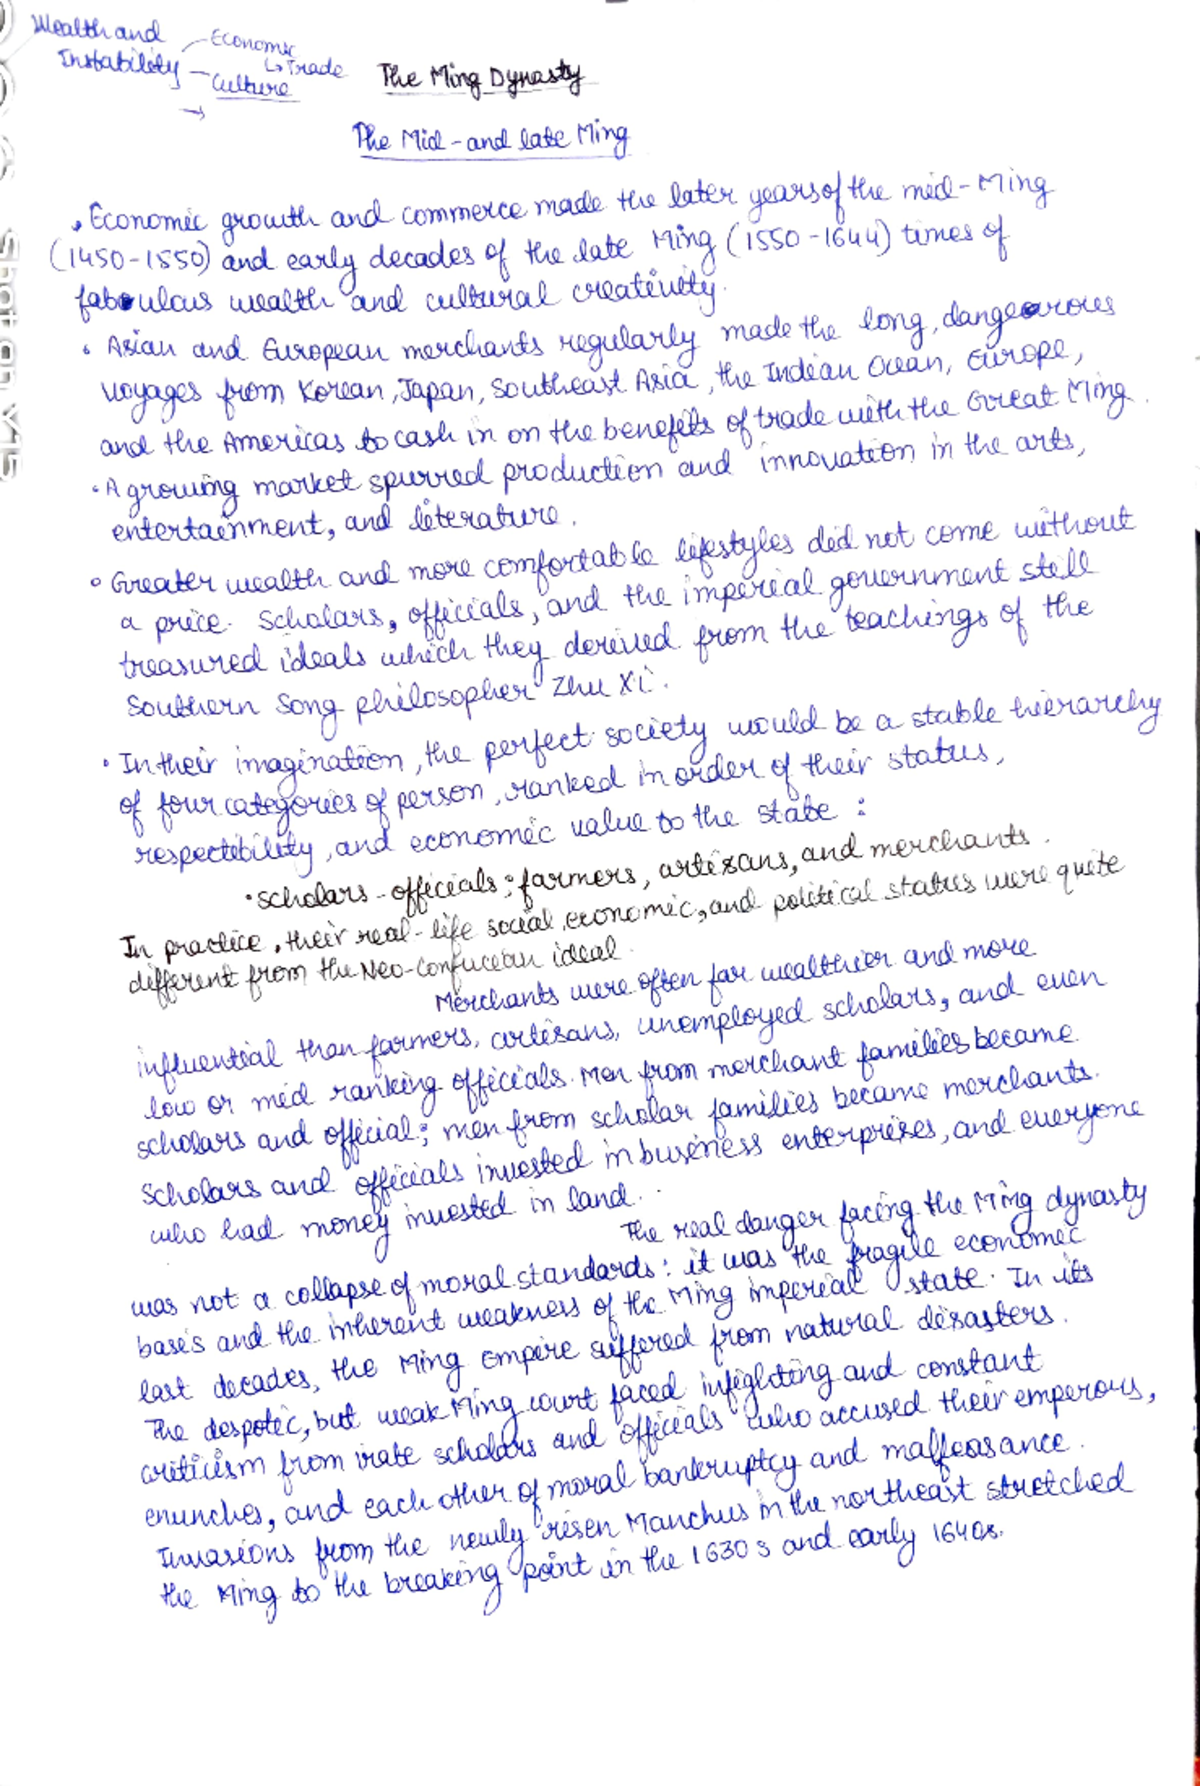 Wealth and
Instability
- Economic
↳ Trade
- Culture
→
The Ming Dynasty
The Mid - and late Ming
• Economic growth and commerce made the later years of the mid-Ming
(1450-1550) and early decades of the late Ming (1550-1644) times of
fabulous wealth and cultural creativity.
• Asian and European merchants regularly made the long, dangeorous
voyages from Korean, Japan, Southeast Asia, the Indian Ocean, Europe,
and the Americas to cash in on the benefits of trade with the Great Ming.
• A growing market spurred production and innovation in the arts,
entertainment, and literature.
• Greater wealth and more comfortable lifestyles did not come without
a price. Scholars, officials, and the imperial government still
treasured ideals which they derived from the teachings of the
Southern Song philosopher Zhu Xi.
• In their imagination, the perfect society would be a stable hierarchy
of four categories of person, ranked in order of their status,
respectibility, and economic value to the state :
• scholars - officials; farmers, artisans, and merchants.
In practice, their real-life social, economic, and political status were quite
different from the Neo-Confucean ideal.
Merchants were often far wealthier and more
influential than farmers, artisans, unemployed scholars, and even
low or mid ranking officials. Men from merchant families became
scholars and official; men from scholar families became merchants.
Scholars and officials invested in business enterprises, and everyone
who had money invested in land.
The real danger facing the Ming dynasty
was not a collapse of moral standards: it was the fragile economic
bases and the inherent weakness of the Ming imperial state. In its
last decades, the Ming Empire suffered from natural disasters.
The despotic, but weak Ming court faced infighting and constant
criticism from irate scholars and officials who accused their emperous,
enunches, and each other of moral bankruptcy and malfeasance.
Invasions from the newly risen Manchus in the northeast stretched
the Ming to the breaking point in the 1630s and early 1640s.